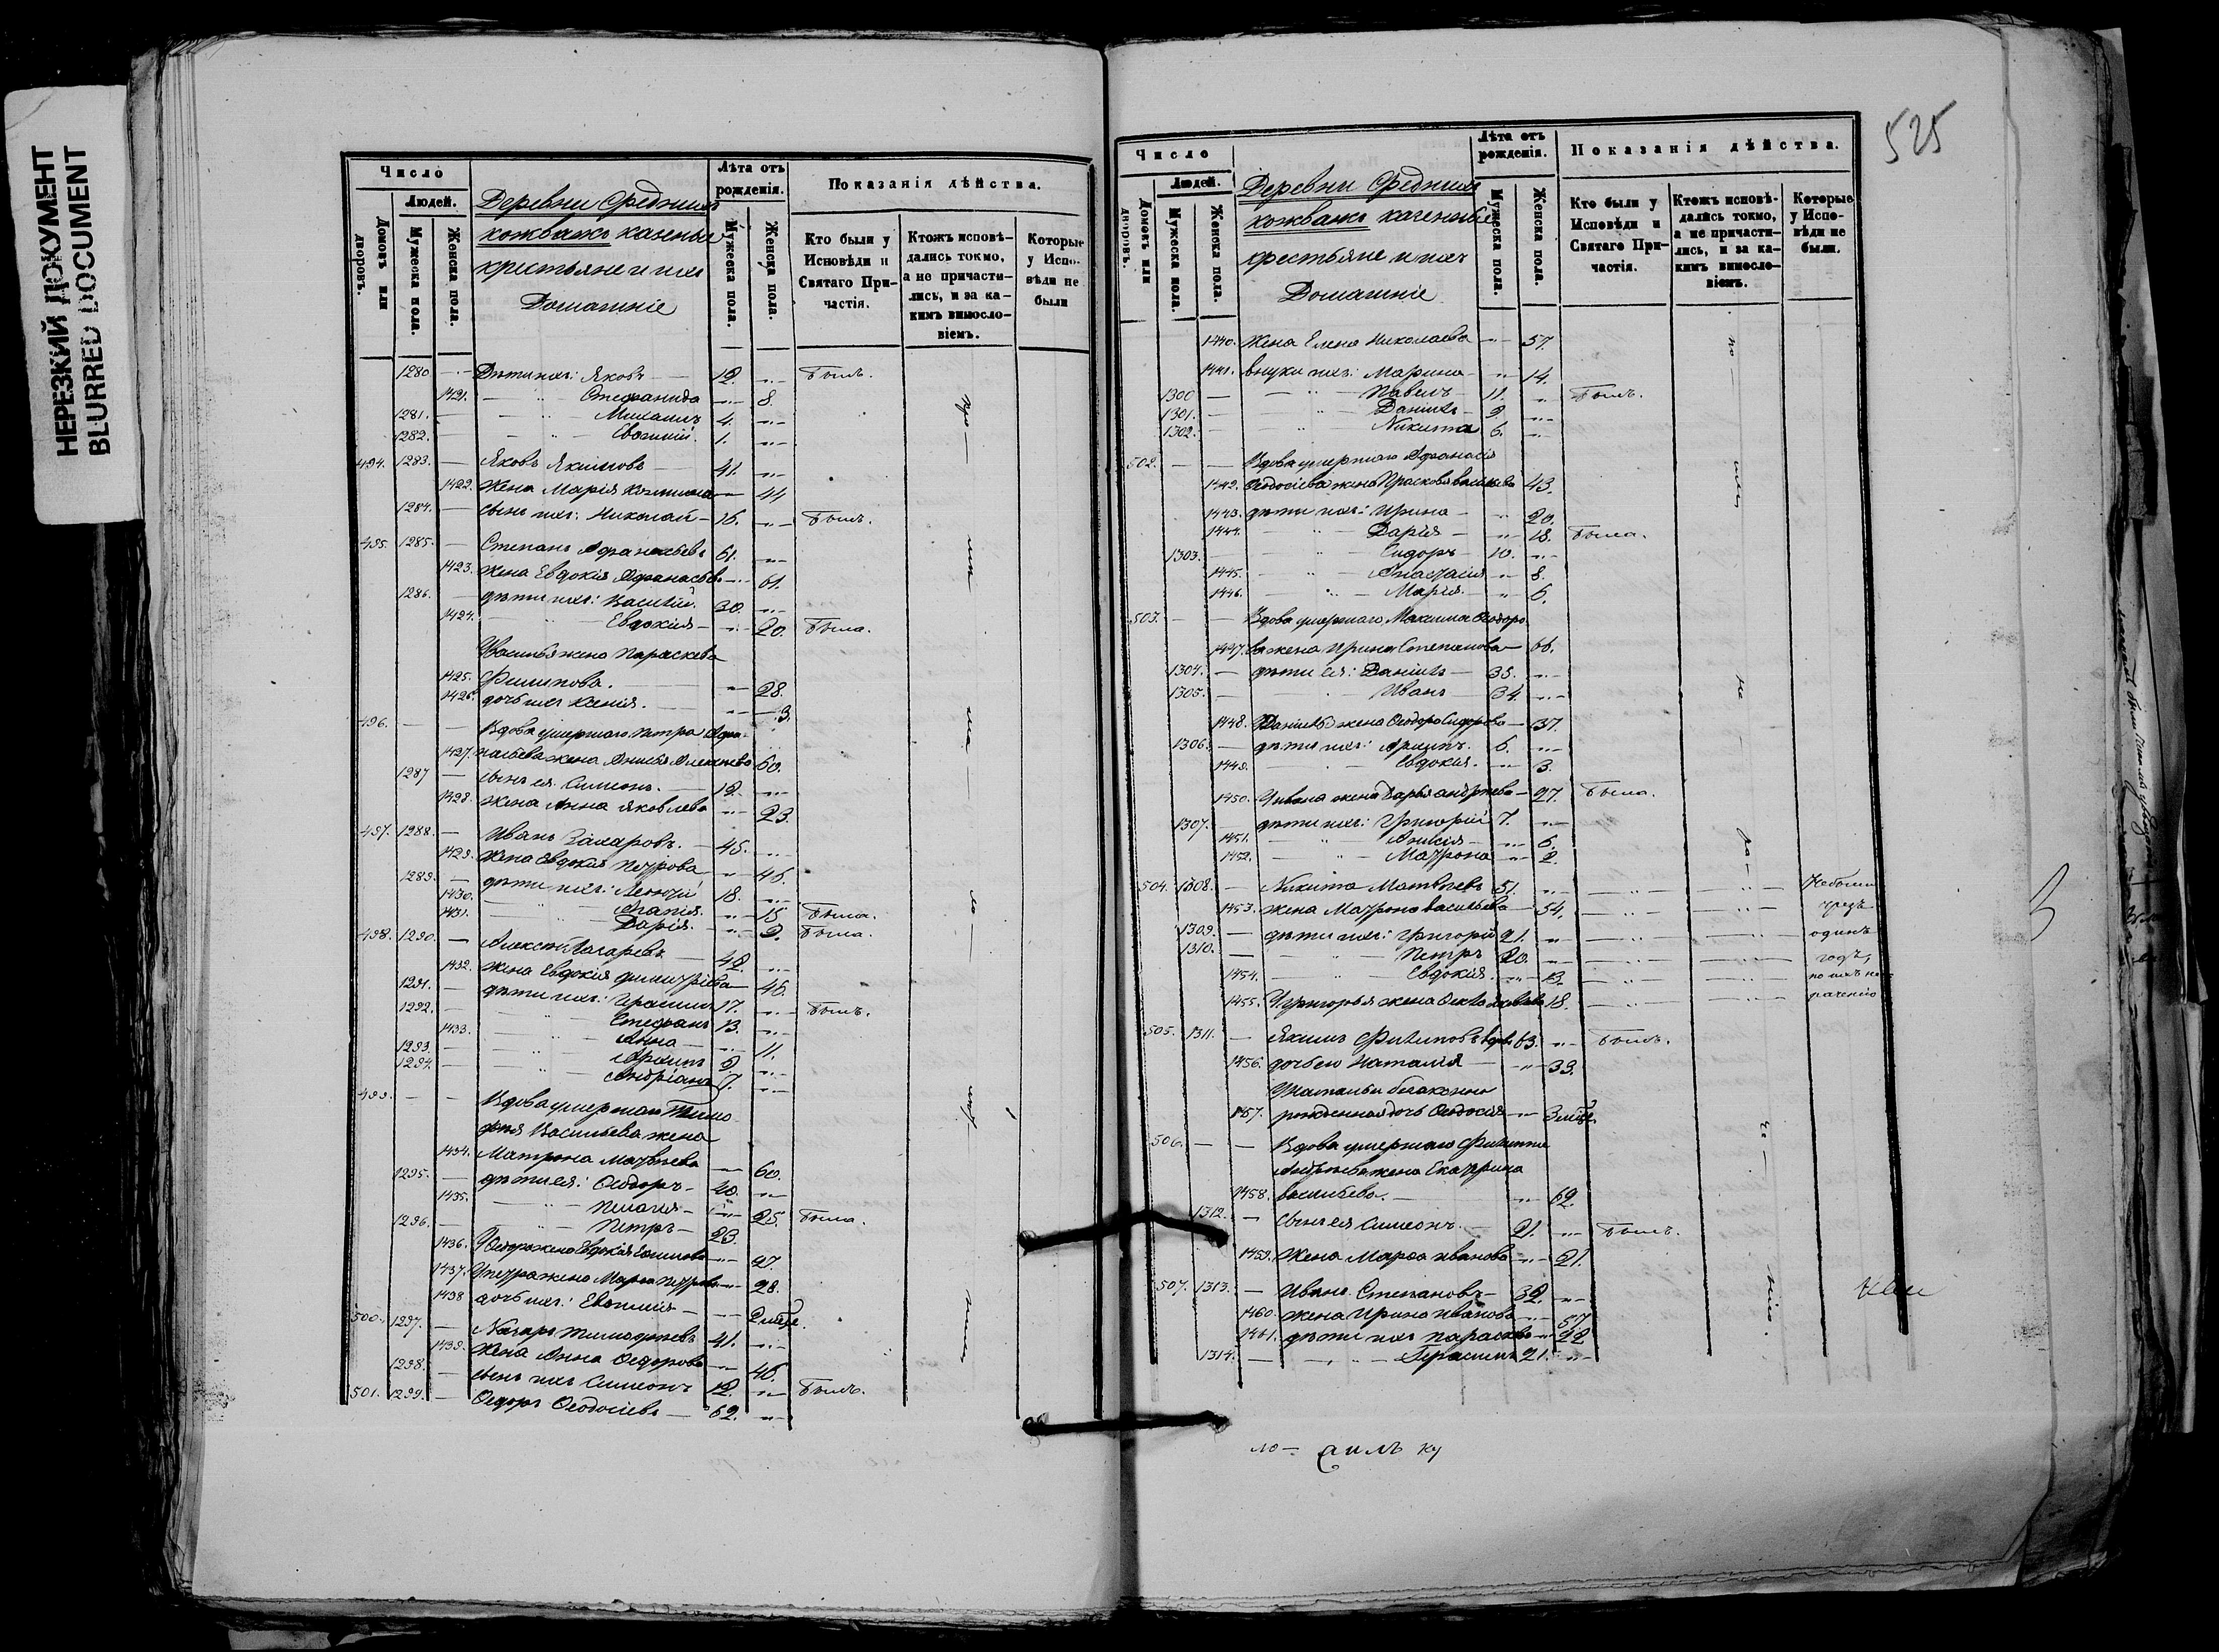 НЕРЕЗКИЙ ДОКУМЕНТ
BLURRED DOCUMENT
Число
Людей.
Домовъ или дворовъ.
Мужеска пола.
Женска пола.
Деревни Средних
кожважъ казенные
крестьяне и ихъ
Домашніе
Лѣта отъ рожденія.
Мужеска пола.
Женска пола.
Показанія дѣйства.
Кто были у Исповѣди и Святаго Причастія.
Ктожъ исповѣ-дались токмо, а не причасти-лись, и за ка-кимъ винословіемъ.
Которые у Испо-вѣди не были
1280 Дѣти ихъ: Яковъ 12. Былъ.
1421. Стефанида 8.
1281. Михаилъ 4.
1282. Евѳимій 1.
494. 1283. Яковъ Якимовъ 41.
1422. Жена Марія 44
1284. сынъ ихъ: Николай 16. Былъ.
495. 1285. Степанъ Афанасьевъ 61.
1423. Жена Евдокія Афанасьева 61.
1286. дѣти ихъ: Василій 30.
1424. Евдокия 20. Была.
У Василья жена Параскева
1425. Филипова. 28.
1426. дочь ихъ Ксенія. 3.
496. Вдова умершаго Петра Афа-
1427. насьева жена Анисья Алексѣева 60.
1287 сынъ ея Симеонъ. 19.
1428. жена Анна Яковлева 23.
497. 1288. Иванъ Захаровъ. 45.
1429. Жена Евдокия Петрова 46.
1289. дѣти ихъ: Леонтій 18.
1430. Анания. 15 Была.
1431. Дарія. 9. Была.
498. 1290. Алексѣй Захаровъ 42.
1432. Жена Евдокия Димитріева 46.
1291. дѣти ихъ: Герасимъ 17. Былъ.
1292. Стефанъ 13.
1433. Анна 11.
1293. Архипъ 9.
1294. Андріанъ 7.
499. Вдова умершаго Тимо
фея Васильева жена
1434. Матрона Матвѣева 60.
1295. дѣти ея: Ѳеодоръ 40.
1435. Пелагия 25. Была.
1296. Петръ 23.
1436. У Ѳеодора жена Евдокія 27.
1437. У Петра жена Марѳа Петрова 28.
1438 дочь ихъ: Евѳимия 2 мѣсе.
500. 1297. Назаръ Тимофѣевъ 41.
1439. Жена Анна Ѳедорова 46.
1298. сынъ ихъ Симеонъ 12. Былъ.
501. 1299. Ѳедоръ Ѳеодосіевъ 62.
525
Число
Людей.
Домовъ или дворовъ.
Мужеска пола.
Женска пола.
Деревни Средних
кожважъ казенные
крестьяне и ихъ
Домашніе
Лѣта отъ рожденія.
Мужеска пола.
Женска пола.
Показанія дѣйства.
Кто были у Исповѣди и Святаго При-частія.
Ктожъ исповѣ-дались токмо, а не причасти-лись, и за ка-кимъ винослo-віемъ.
Которые у Испо-вѣди не были.
1440. Жена Елена Николаева 57.
1441. внуки ихъ: Марина 14.
1300 Павелъ 11. Былъ.
1301. Даніилъ 9.
1302. Никита 6.
502. Вдова умершаго Афанасія
1442. Ѳеодосіева жена Прасковья Васильева 43.
1443. дѣти ихъ: Ирина 20.
1444. Дарія 18. Была.
1303. Сидоръ 10.
1445. Анастасия 8.
1446. Марія. 6.
503. Вдова умершаго Максима Ѳеодоро
1447. ва жена Ирина Степанова 66.
1304. дѣти ея: Даніилъ 35.
1305. Иванъ 34.
1448. У Даніила жена Ѳеодора Сидорова 37.
1306. дѣти ихъ: Архипъ. 6.
1449. Евдокия. 3.
1450. У Ивана жена Дарья Андреева 27. Была.
1307. дѣти ихъ: Григорій 7.
1451. Анисія 6.
1452. Матрона 2.
504. 1308. Никита Матвѣевъ 51. Не были
1453. Жена Матрона Васильева 54. чрезъ
1309. дѣти ихъ: Григорій 21. одинъ
1310. Петръ 20. годъ,
1454. Евдокия. 13. по ихъ не
1455. У Григорья жена Ѳекла 18. раченію
505. 1311. Якимъ Филиповъ вдовъ 63. Былъ.
1456. дочь его Наталия 33.
У Натальи безаконно
1457. рожденная дочь Ѳеодосия 3 мѣсе.
506. Вдова умершаго Филиппа
Андреева жена Екатерина
1458. Васильева. 62.
1312. сынъ ея Симеонъ. 21. Былъ.
1459. Жена Марѳа Иванова 21.
507. 1313. Иванъ Степановъ 32.
1460. жена Ирина Иванова 57
1461. дѣти ихъ Параскева 22
1314. Герасимъ 21.